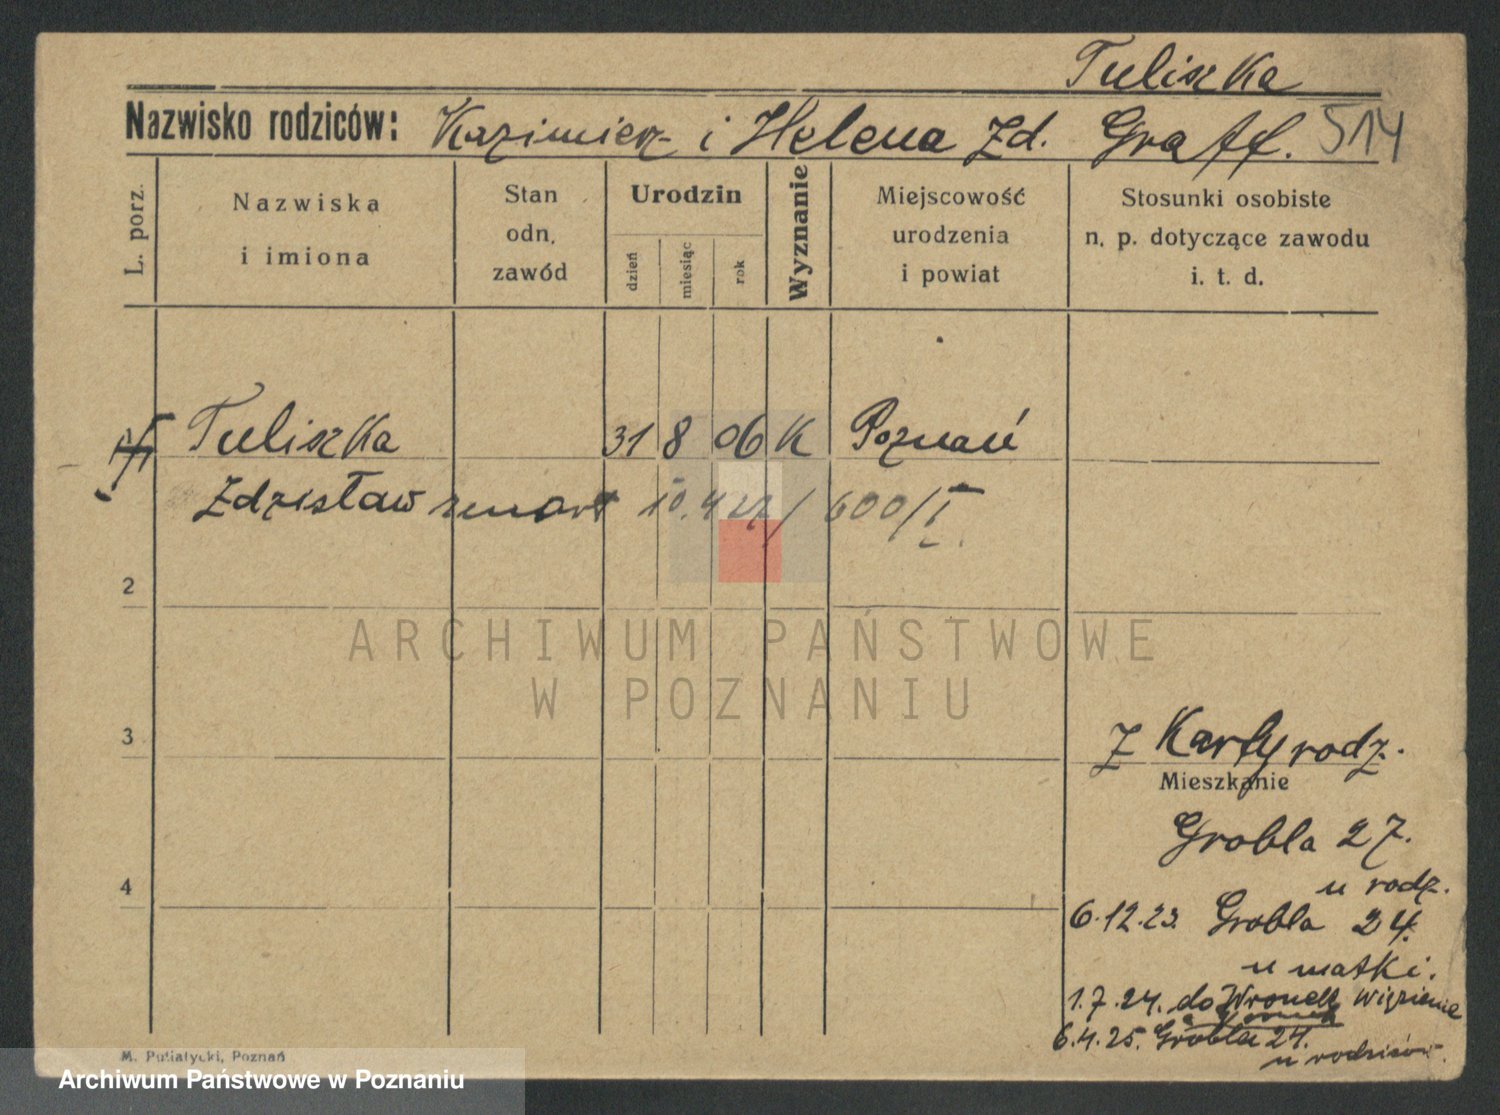 Tuliszka
Nazwisko rodziców: Kazimierz i Helena zd. Graff. 514
L. porz.
Nazwiska
i imiona
Stan
odn.
zawód
Urodzin
dzień
miesiąc
rok
Wyznanie
Miejscowość
urodzenia
i powiat
Stosunki osobiste
n. p. dotyczące zawodu
i. t. d.
Tuliszka 31 8 06 K Poznań
Zdzisław zmarł 10.4 27/600/I.
2
ARCHIWUM PAŃSTWOWE
W POZNANIU
3
z Karty rodz.
Mieszkanie
Grobla 27.
u rodz.
4
6.12.23. Grobla 24.
u matki.
1.7.24. do Wronek więzienie
6.4.25. Grobla 24.
u rodziców.
M. Putiatycki, Poznań
Archiwum Państwowe w Poznaniu